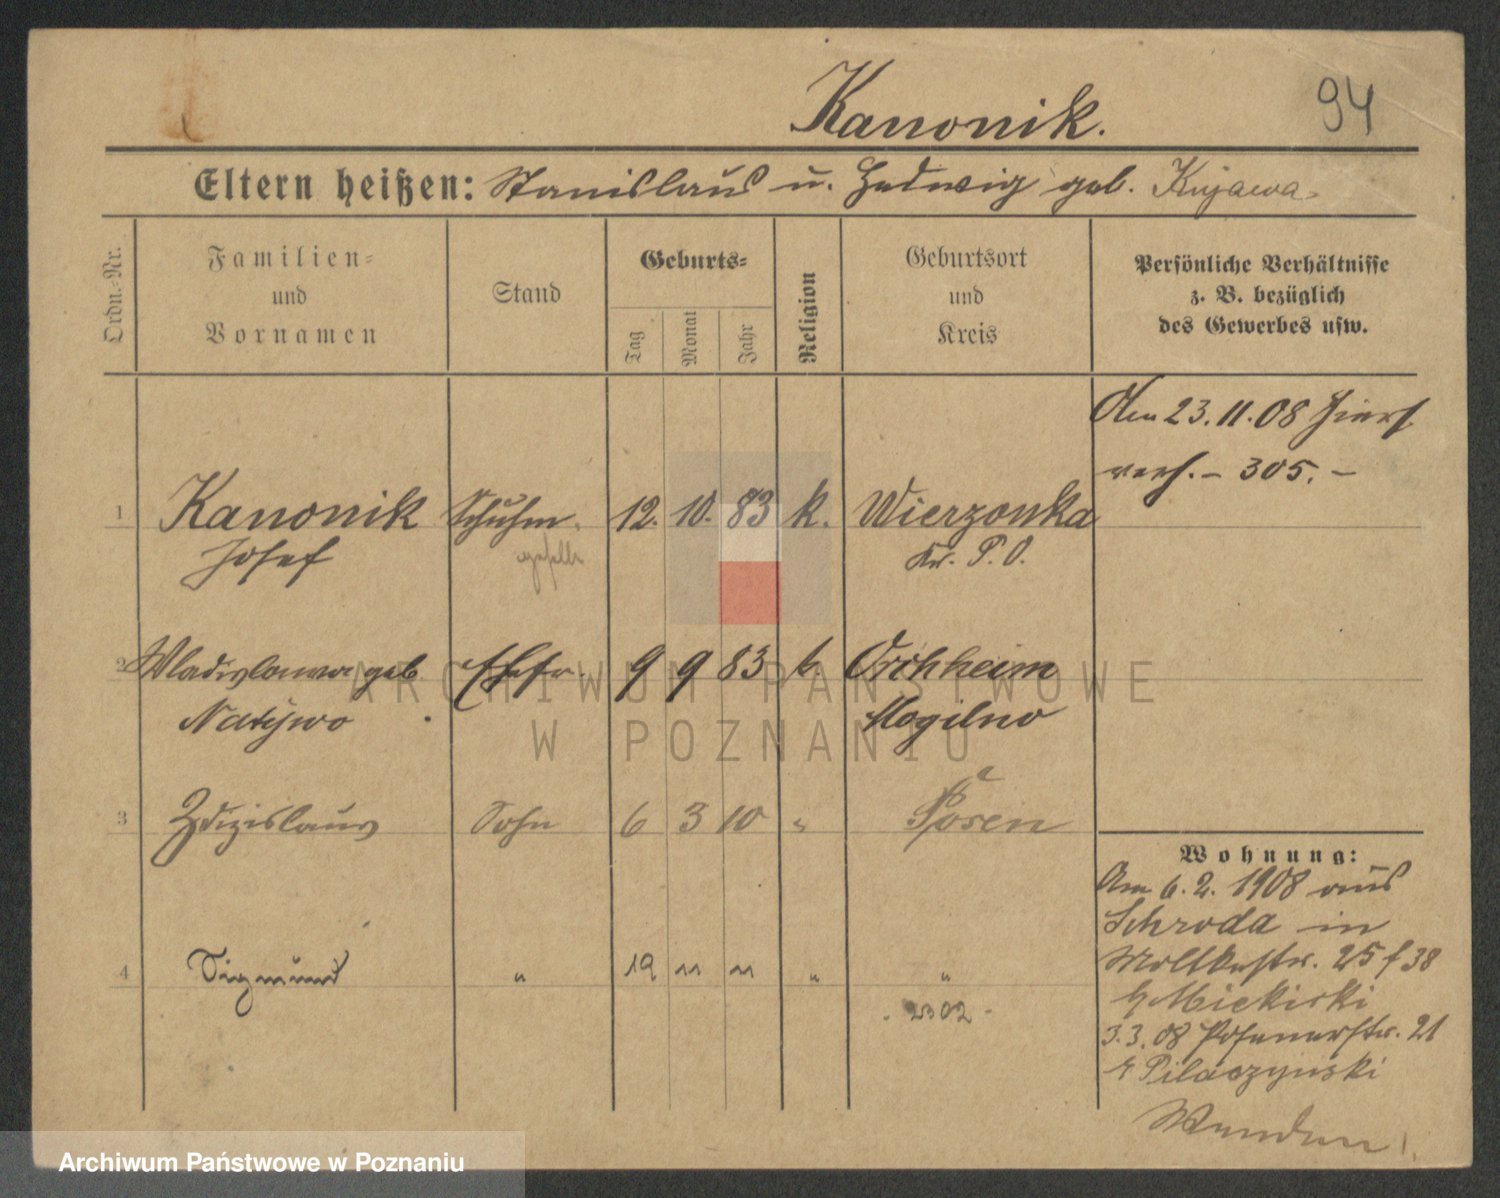 Kanonik.
94
Eltern heißen: Stanislaus u. Hedwig geb. Kujawa
Ordn.-Nr.
Familien-
und
Vornamen
Stand
Geburts-
Tag
Monat
Jahr
Religion
Geburtsort
und
Kreis
Persönliche Verhältnisse
z. B. bezüglich
des Gewerbes usw.
Am 23.11.08 hiers.
verh. - 305. -
1 Kanonik Schuhm. 12. 10. 83 k. Wierzonka
Josef geselle Kr. P. O.
2 Wladislawa geb. Ehefr. 9 9 83 k. Orchheim
Natywo Mogilno
3 Zdzislaus Sohn 6 3 10 " Posen
4 Sigmund " 19 11 11 " "
2302 -
Wohnung:
Am 6. 2. 1908 aus
Schroda in
Moltkestr. 25 f 38
b Miekiski
3.3.08 Posenerstr. 21
b Pilaczynski
ARCHIWUM PAŃSTWOWE
W POZNANIU
Archiwum Państwowe w Poznaniu